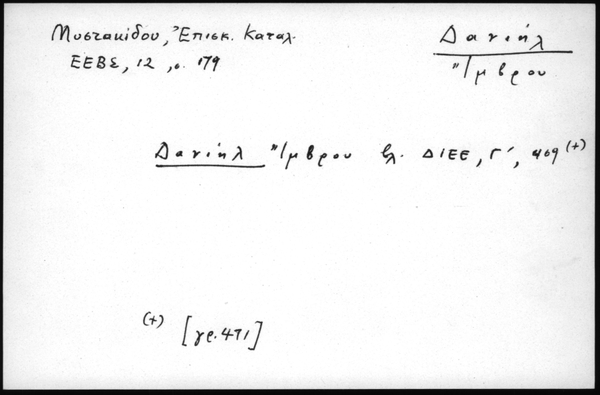 Μυστακίδου, Ἐπισκ. Καταλ.
ΕΕΒΣ, 12, σ. 179
Δανιήλ
Ἴμβρου
Δανιήλ Ἴμβρου βλ. ΔΙΕΕ, Γ´, 469 (+)
(+) [γρ. 471]